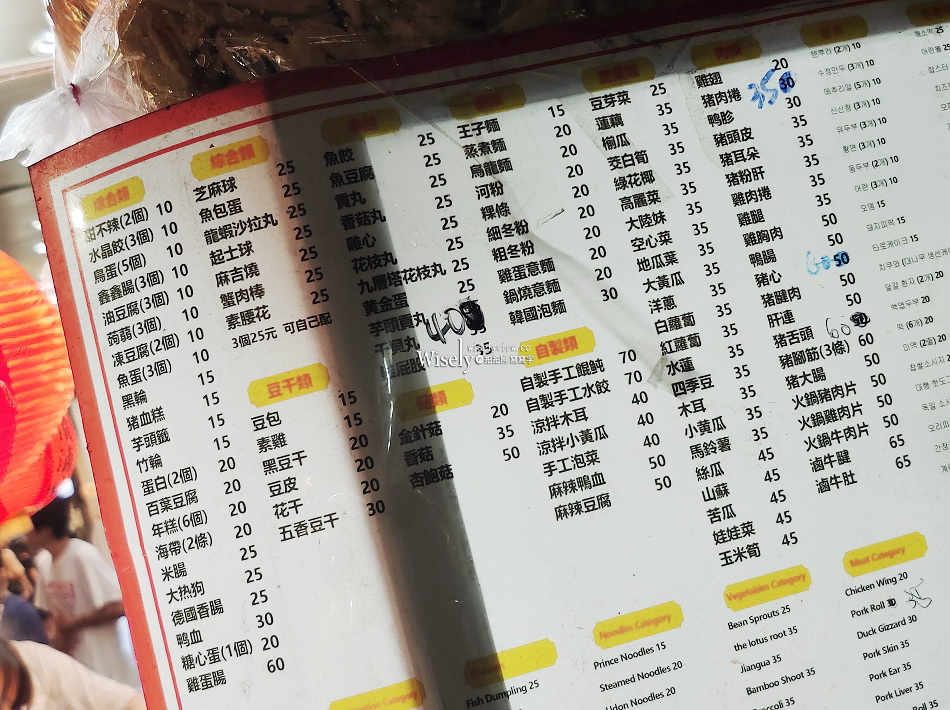 綜合類
甜不辣(2個) 10
水晶餃(3個) 10
鳥蛋(5個) 10
鑫鑫腸(3個) 10
油豆腐(3個) 10
蒟蒻(3個) 10
凍豆腐(2個) 10
魚蛋(3個) 10
黑輪 15
豬血糕 15
芋頭籤 15
竹輪 15
蛋白(2個) 20
百葉豆腐 20
年糕(6個) 20
海帶(2條) 20
米腸 25
大热狗 25
德國香腸 25
鴨血 30
糖心蛋(1個) 20
雞蛋腸 60
綜合類
芝麻球 25
魚包蛋 25
龍蝦沙拉丸 25
起士球 25
麻吉燒 25
蟹肉棒 25
素腰花 25
3個25元 可自己配
豆干類
豆包 15
素雞 15
黑豆干 15
豆皮 20
花干 20
五香豆干 30
魚餃 25
魚豆腐 25
貢丸 25
香菇丸 25
雞心 25
花枝丸 25
九層塔花枝丸 25
黃金蛋
芋頭貢丸 40
菇類
金針菇 20
香菇 35
杏鮑菇 50
王子麵 15
蒸煮麵 20
烏龍麵 20
河粉 20
粿條 20
細冬粉 20
粗冬粉 20
雞蛋意麵 20
鍋燒意麵 20
韓國泡麵 30
自製類
自製手工餛飩 70
自製手工水餃 70
涼拌木耳 40
涼拌小黃瓜 40
手工泡菜 40
麻辣鴨血 50
麻辣豆腐 50
豆芽菜 25
蓮藕 35
榆瓜 35
茭白筍 35
綠花椰 35
高麗菜 35
大陸妹 35
空心菜 35
地瓜葉 35
大黃瓜 35
洋蔥 35
白蘿蔔 35
紅蘿蔔 35
水蓮 35
四季豆 35
木耳 35
小黃瓜 35
馬鈴薯 35
絲瓜 45
山蘇 45
苦瓜 45
娃娃菜 45
玉米筍 45
雞翅 20
豬肉捲 35
鴨胗 30
豬頭皮 35
豬耳朵 35
豬粉肝 35
雞肉捲 35
雞腿 35
雞胸肉 50
鴨腸 50
豬心 50
豬腱肉 50
肝連 50
豬舌頭 60
豬腳筋(3條) 60
豬大腸 50
火鍋豬肉片 50
火鍋雞肉片 50
火鍋牛肉片 50
滷牛腱 65
滷牛肚 65
수정만두 (3개) 10
메추리알 (5개) 10
유두부 (3개) 10
어란 (3개) 10
오뎅 15
돼지피떡 15
타로케이크 15
떡 (6개) 20
Fish Dumpling 25
Noodles Category
Prince Noodles 15
Steamed Noodles 20
Udon Noodles 20
Vegetables Category
Bean Sprouts 25
the lotus root 35
Jiangua 35
Bamboo Shoot 35
Broccoli 35
Meat Category
Chicken Wing 20
Pork Roll 35
Duck Gizzard 30
Pork Skin 35
Pork Ear 35
Pork Liver 35
Wisely